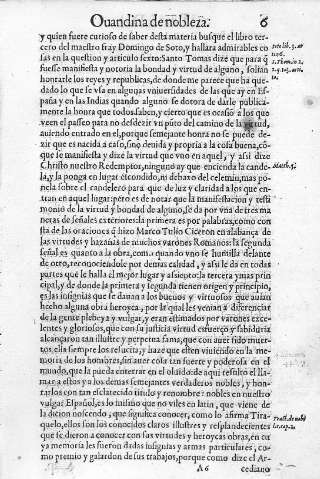 Ouandina de nobleza. 6
y quien fuere curioso de saber desta materia busque el libro ter-
cero del maestro fray Domingo de Soto, y hallara admirables co
sas en la question y articulo sexto. Santo Tomas dize que para q̃
fuesse manifiesta y notoria la bondad y virtud de alguno, solian
honrarle los reyes y republicas, de donde me parece que ha que-
dado lo que se vsa en algunas vniuersidades de las que ay en Espa-
ña y en las Indias quando alguno se dotora de darle publica-
mente la honra que todos saben, y cierto que es ocasiõ a los que
veen el passeo para no desdezir vn pũto del camino de la virtud,
auiendo entrado en el, porque semejante honra no se puede de-
zir que es nacida a caso, sino deuida y propria a la cosa buena, cõ-
que se manifiesta y dize la virtud que vuo en aquel, y assi dize
Christo nuestro Redemptor, ninguno ay que encienda la cande-
la, y la ponga en lugar escondido, ni debaxo del celemin, mas po
nela sobre el candelero para que de luz y claridad a los que en-
tran en aquel lugar: pero es de notar que la manifestacion y testi
monio de la virtud y bondad de alguno, se da por vna de tres ma
neras de señales exteriores: la primera es por palabras, como con
sta de las oraciones q̃ hizo Marco Tulio Ciceron en alabança de
las virtudes y hazañas de muchos varones Romanos: la segunda
señal es quanto a la obra, como quando vno se humilla delante
de otro, reconociendole por demas calidad, y assi le da en todas
partes que le halla el mejor lugar y assiento: la tercera y mas prin
cipal, y de donde la primera y segunda tienen origen y principio,
es las insignias que se dauan a los buenos y virtuosos que auian
hecho alguna obra heroyca, por la qual les venian a diferenciar
de la gente plebeya y vulgar, y eran estimados por varones exce-
lentes y gloriosos, que con su justicia virtud esfuerço y sabiduria
alcançaron tan illustre y perpetua fama, que con auer sido muer-
tos, ella siempre los resucita, y haze que esten viuiendo en la me-
moria de los hombres, sin auer cosa tan fuerte y poderosa en el
mundo, que la pueda enterrar en el oluido: de aqui resulto el lla-
mar a estos y a los demas semejantes verdaderos nobles, y hon-
rarlos con tan esclarecido titulo y renombre: nobles en nuestro
vulgar Español, es lo mismo que nobiles en latin, que viene de
la dicion noscendo, que significa conocer, como lo afirma Tira-
quelo, ellos son los conocidos claros illustres y resplandecientes
que se dieron a conocer con sus virtudes y heroycas obras, en cu
ya memoria les fueron dadas insignias y armas particulares, co-
mo premio y galardon de sus trabajos, porque como dize el Ar-
A 6 cediano